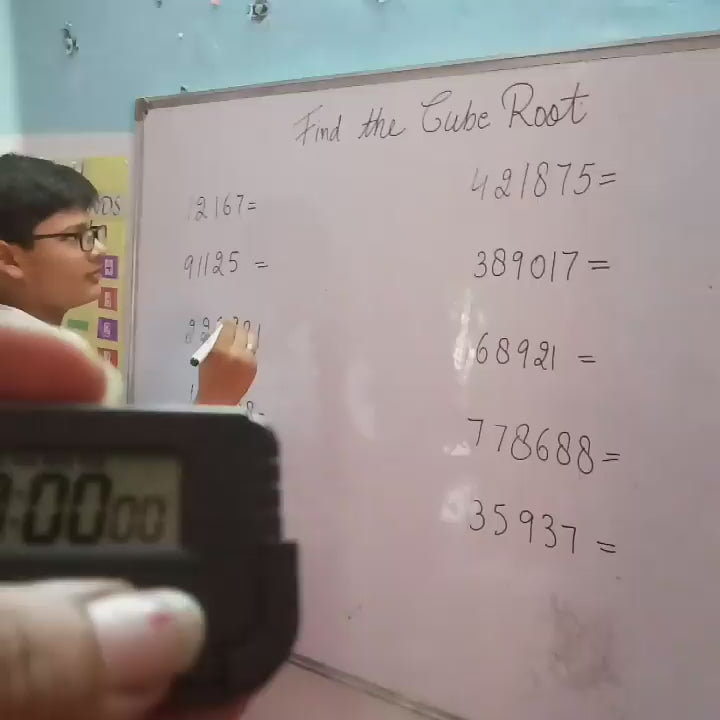 Find the Cube Root
12167=
91125 =
421875=
389017=
68921 =
778688=
35937 =
:0000